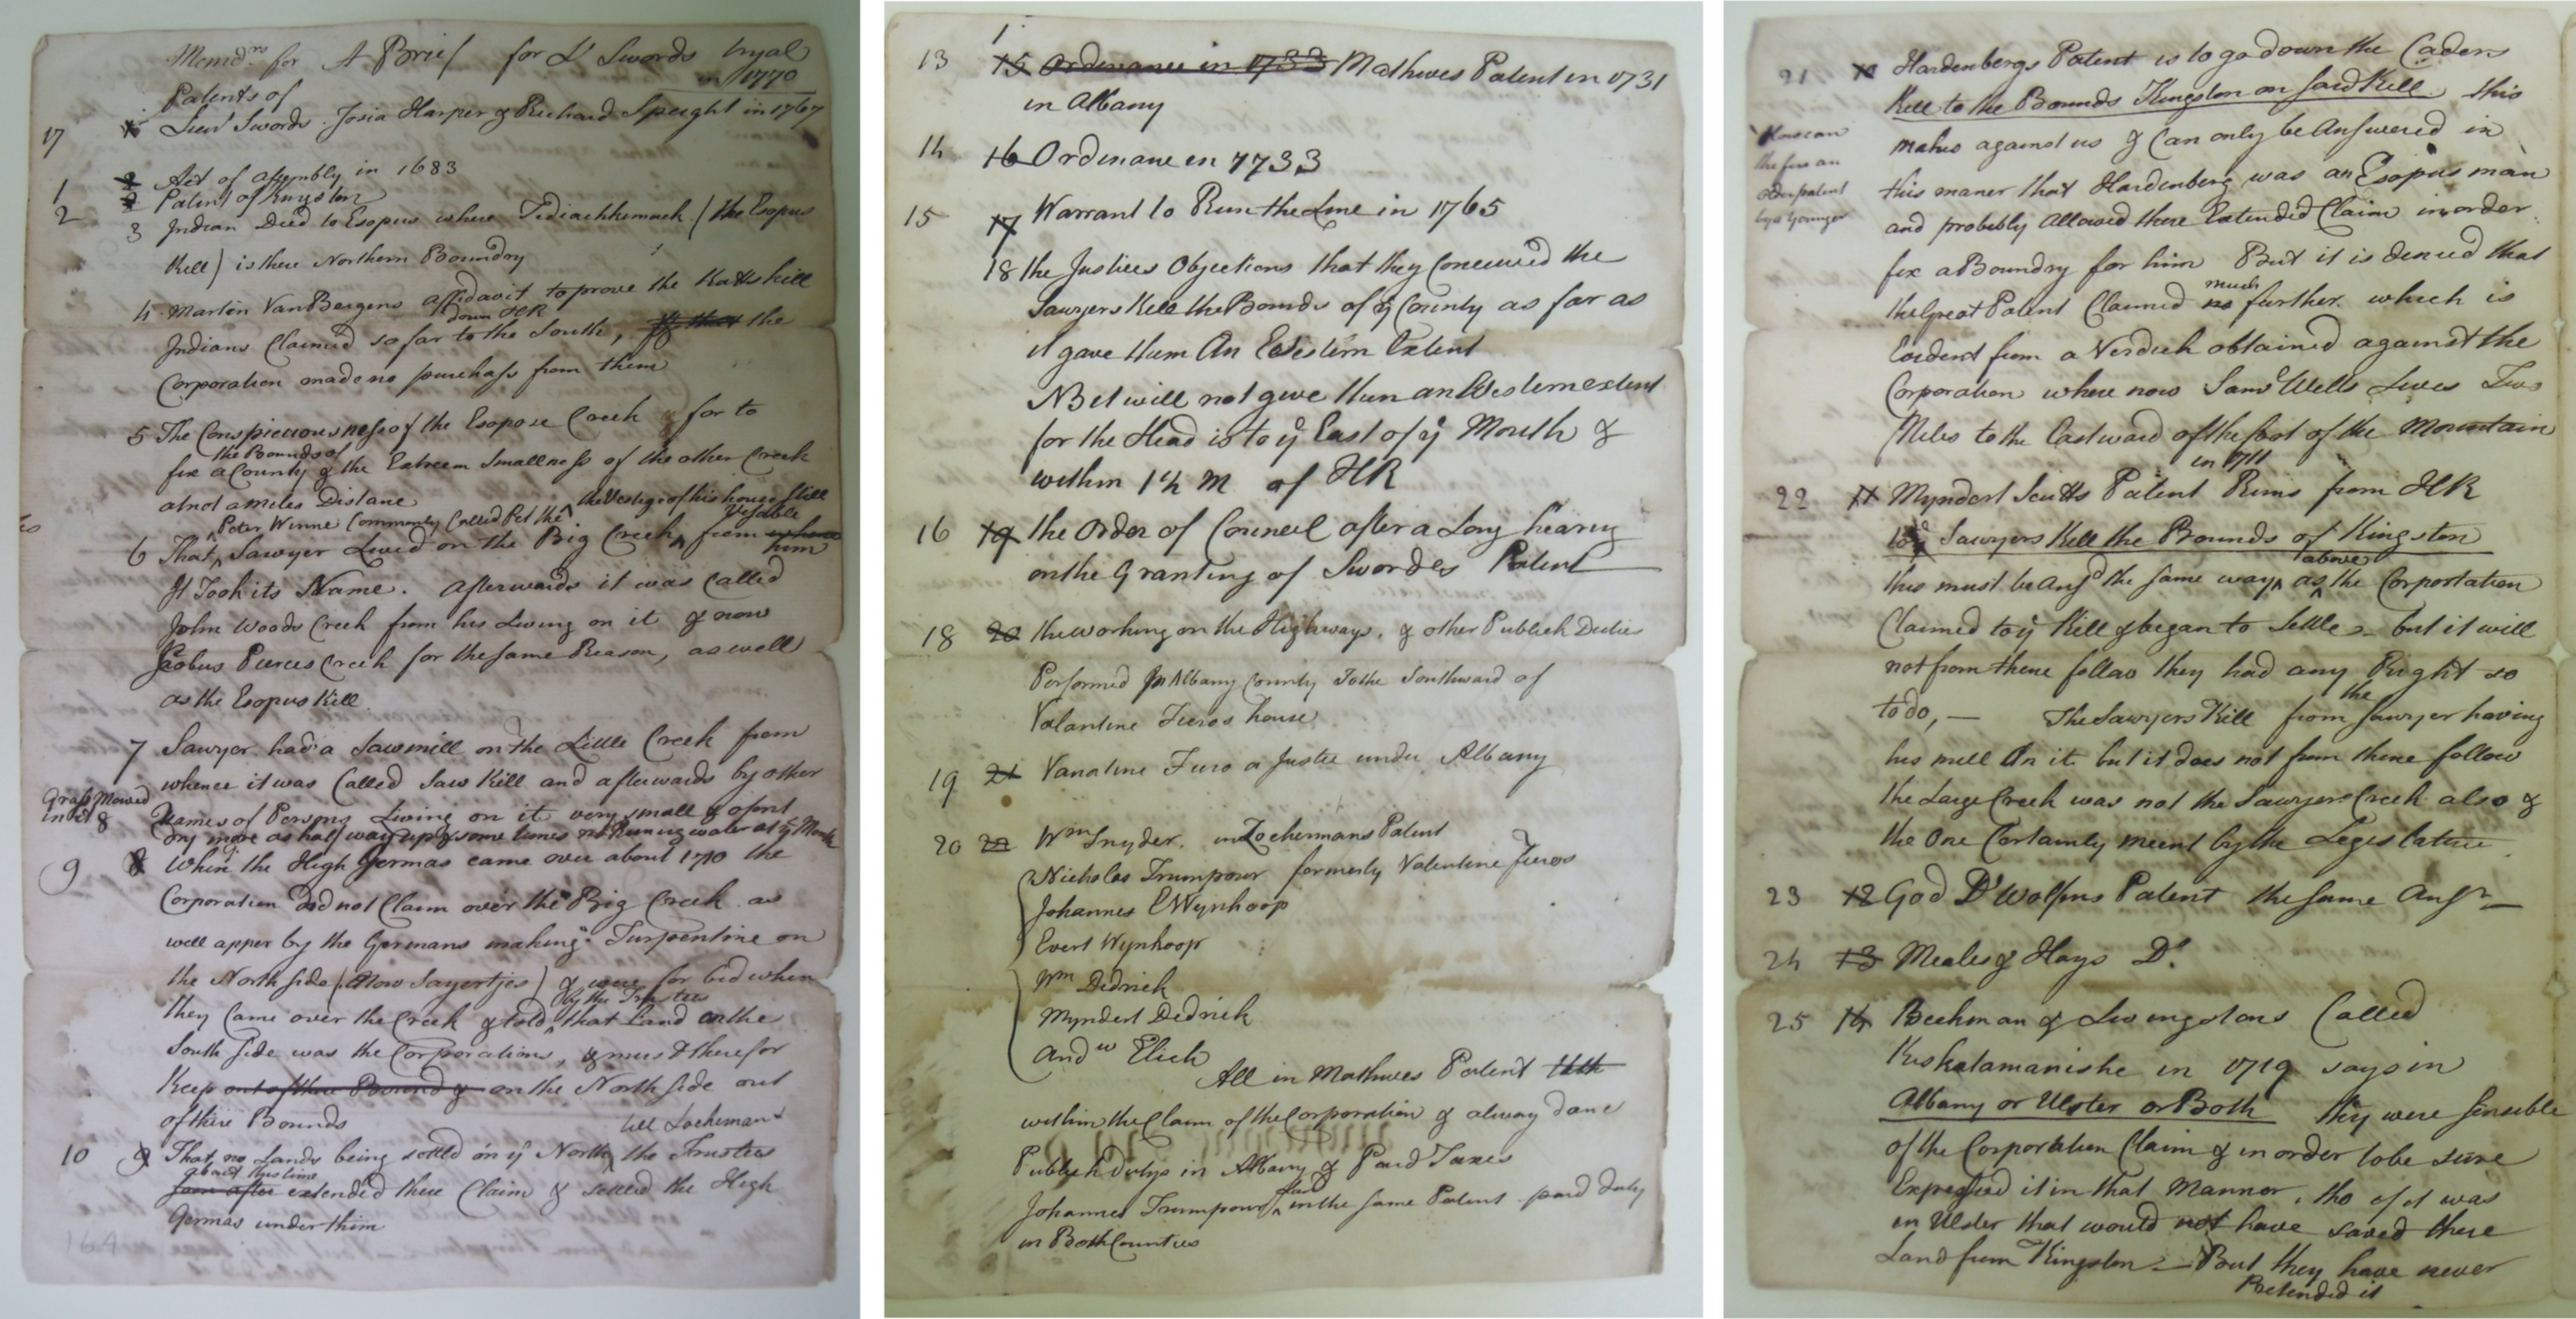 Memdm for A Brief for Lt Swords tryal
in 1770
Patents of
17 Lieut Swords. Josia Harper & Richard Speight in 1767
1 2 Act of Assembly in 1683
2 Patent of Kingston
3 Indian Deed to Esopus where Tediachhemack (the Esopus
Kill) is there Northern Boundry
4 Marten Van Bergens affidavit to prove the Katts kill
down HR
Indians Claimed so far to the South, the
Corporation made no purchass from them
5 The Conspicuousness of the Esopus Creek for to
the Bounds of
fix a County & the Extreem Smallness of the other Creek
at not a miles Distance
Peter Winne Commonly Called Pet the the Vestige of his house still
Visible
6 That Sawyer Lived on the Big Creek from whom
him
It Took its Name. Afterwards it was Called
John Woods Creek from his Living on it & now
Jacobus Pierces Creek for the same Reason, as well
as the Esopus Kill
7 Sawyer had a Sawmill on the Little Creek from
whence it was Called Saw Kill and afterwards by other
Grass Mowed
in it 8 Names of Persons Living on it very small & often
dry more as half way up & some times no Runing water at ye Mouth
9 8 When the High Germas came over about 1710 the
Corporation did not Claim over the Big Creek as
will apper by the Germans making Turpentine on
the North side (Now Sayertjes) & were for bid when
by the Trustees
they Came over the Creek & told that Land on the
South side was the Corporations, & must therefor
Keep out of there Bound & on the North side out
of there Bounds till Lockermans
10 9 That no Lands being settled on ye North the Trustees
about this time
soon after extended there Claim & settled the High
Germas under them
164
13 15 Ordinance in 1733 Mathews Patent in 1731
in Albany
14 16 Ordinance in 1733
15 17 Warrant to Run the Line in 1765
18 the Justices Objections that they Conceived the
Sawyers Kill the Bounds of ye County as far as
it gave them An Western Extent
NB it will not give them an Westernextent
for the Head is to ye East of ye Mouth &
within 1½ M of HR
16 19 the Order of Council after a Long hearing
on the Granting of Swordes Patent
18 20 the working on the Highways, & other Publick Duties
Performed In Albany County To the Southward of
Valantine Fieros house
19 21 Vanatine Fiero a Justice under Albany
20 22 Wm Snyder. in Lockermans Patent
Nicholas Trumpour formerly Valentine Fieros
Johannes E Wynkoop
Evert Wynkoop
Wm Dedrick
Myndert Dedrick
Andw Elich
All in Mathews Patent
within the Claim of the Corporation & alway done
Publick Dutys in Albany & Paid Taxes
Johannes Trumpour in the same Patent paid duty
in Both Counties
21 10 Hardenbergs Patent is to go down the Caders
Kill to the Bounds Kingston on said Kill. this
makes against us & Can only be Answered in
this maner that Hardenberg was an Esopus man
and probibly allowed there Extended Claim in order
fix a Boundry for him But it is denied that
much
the Great Patent Claimed no further. which is
Evident from a Verdick obtained against the
Corporation where now Saml Wells Lives Two
Miles to the Eastward of the foot of the Mountain
in 1711
22 11 Myndert Scutts Patent Runs from HR
to Sawyers Kill the Bounds of Kingston
above
this must be Ansd the same way as the Corportation
Claimed to ye Kill & began to Settle - but it will
not from thence follow they had any Right so
the
to do, — The Sawyers Kill from Sawyer having
his mill On it but it does not from thence follow
the Large Creek was not the Sawyers Creek also &
the One Certainly meent by the Legislature
23 12 God D Wolfins Patent the same Ansr
24 13 Meales & Hays Do
25 14 Beekman & Livingstons Called
Kiskatamanishe in 1719 says in
Albany or Ulster or Both they were sensible
of the Corporation Claim & in order to be sure
Expressed it in that Manner. tho if it was
in Ulster that would not have saved there
Land from Kingston — But they have never
Pretended it